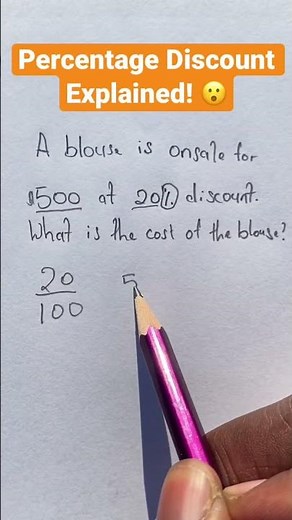 Percentage Discount
Explained! 😮
A blouse is onsale for
$500 at 20% discount.
What is the cost of the blouse?
20
100
5